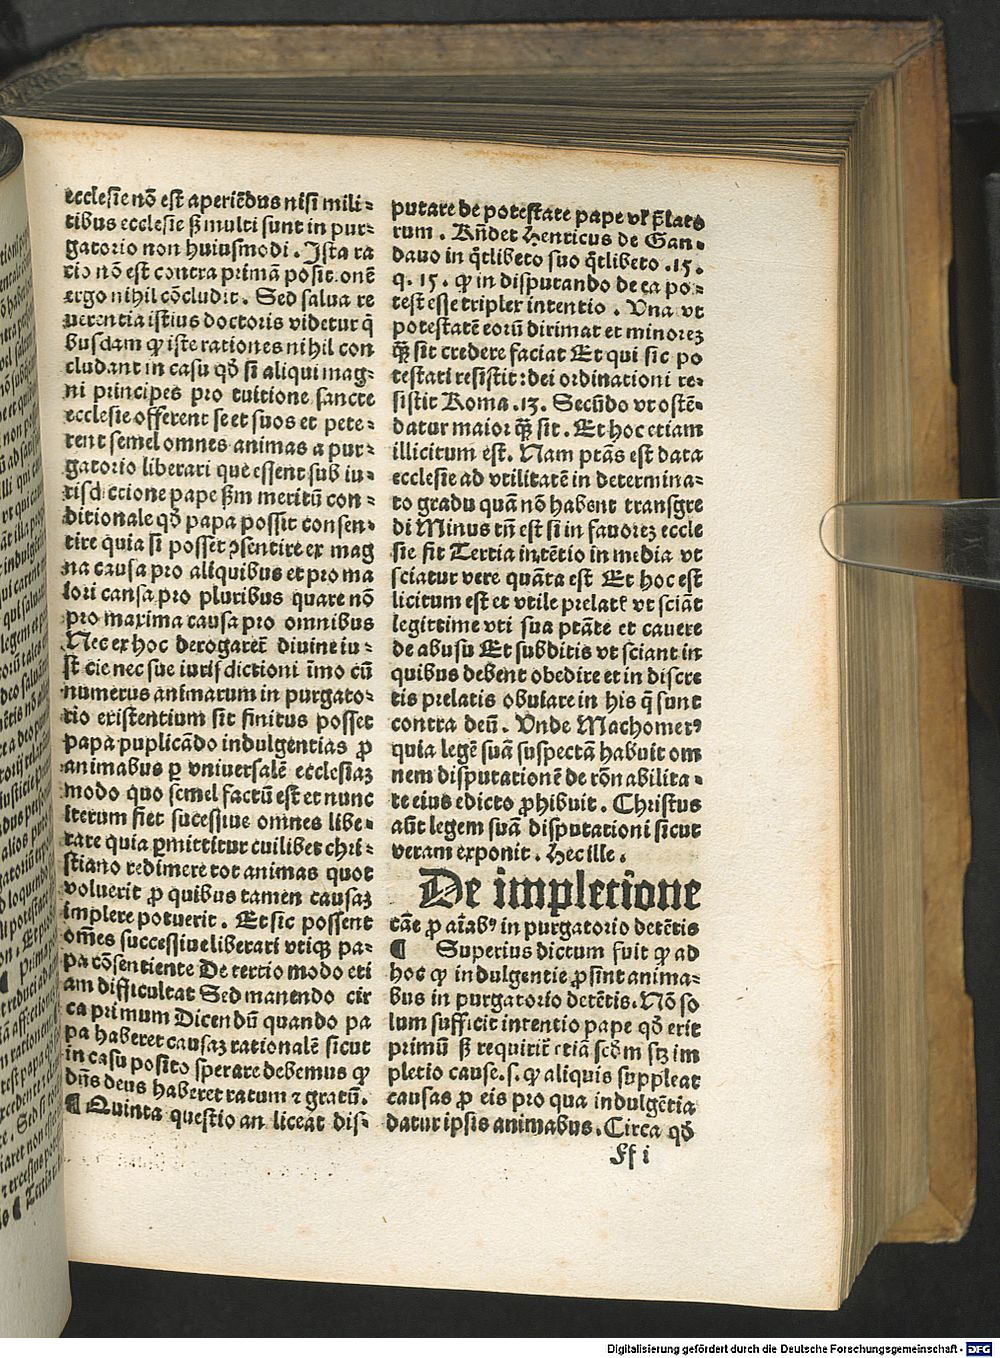 ecclesie nō est aperiēdus nisi mili⸗
tibus ecclesie sꝫ multi sunt in pur⸗
gatorio non huiusmodi. Ista ra
cio nō est contra primā posic.onē
ergo nihil cōcludit. Sed salua re
uerentia istius doctoris videtur q̄
busdam ꝙ iste rationes nihil con
cludant in casu qđ si aliqui mag⸗
ni principes pro tuitione sancte
ecclesie offerent se et suos et pete⸗
rent semel omnes animas a pur⸗
gatorio liberari que essent sub iu⸗
risdiccione pape sꝫm meritū con⸗
ditionale qđ papa possit consen⸗
tire quia si posset ↄsentire ex mag
na causa pro aliquibus et pro ma
iori cansa pro pluribus quare nō
pro maxima causa pro omnibus
Nec ex hoc derogaret᷑ diuine iu⸗
sticie nec sue iurisdictioni īmo cū
numerus animarum in purgato⸗
rio existentium sit finitus posset
papa puplicādo indulgentias ꝓ
animabus ꝑ vniuersalē ecclesiaꝫ
modo quo semel factū est et nunc
iterum fiet sucessiue omnes libe⸗
rare quia ꝑmittitur cuilibet chri⸗
stiano redimere tot animas quot
voluerit ꝓ quibus tamen causaꝫ
implere potuerit. Et sic possent
om̄es successiue liberari vtiqꝫ pa⸗
pa cōsentiente De tercio modo eti
am difficultat Sed manendo cir
ca primum Dicendū quando pa
pa haberet causaꝫ rationalē sicut
in casu posito sperare debemus ꝙ
dn̄s deus haberet ratum ⁊ gratū.
¶ Quinta questio an liceat dis⸗
putare de potestate pape vł p̄lato
rum. Rn̄det Henricus de Gan⸗
dauo in q̄tlibeto suo q̄tlibeto .15.
q. 15. ꝙ in disputando de ea po⸗
test esse triplex intentio. Vna vt
potestatē eorū dirimat et minoreꝫ
qꝫ̄ sit credere faciat Et qui sic po
testati resistit: dei ordinationi re⸗
sistit Roma .13. Secūdo vt ostē⸗
datur maior qꝫ̄ sit. Et hoc etiam
illicitum est. Nam ptās est data
ecclesie ad vtilitatē in determina⸗
to gradu quā nō habent transgre
di Minus tn̄ est si in fauoreꝫ eccle
sie fit Tertia intētio in media vt
sciatur vere quāta est Et hoc est
licitum est et vtile prelatꝭ vt sciāt
legittime vti sua ptāte et cauere
de abusu Et subditis vt sciant in
quibus debent obedire et in discre
tis prelatis obuiare in his q̄ sunt
contra deū. Vnde Machomet⁹
quia legē suā suspectā habuit om
nem disputationē de rōnabilita⸗
te eius edicto ꝓhibuit. Christus
aūt legem suā disputationi sicut
veram exponit. Hec ille.
De impletione
cāe ꝓ aīab⁹ in purgatorio detētis
¶ Superius dictum fuit ꝙ ad
hoc ꝙ indulgentie ꝓsint anima⸗
bus in purgatorio detētis. Nō so
lum sufficit intentio pape qđ erit
primū sꝫ requirit᷑ etiā scđm sꝫ im
pletio cause .s. ꝙ aliquis suppleat
causas ꝓ eis pro qua indulgētia
datur ipsis animabus. Circa qđ
Ff i
Digitalisierung gefördert durch die Deutsche Forschungsgemeinschaft - DFG